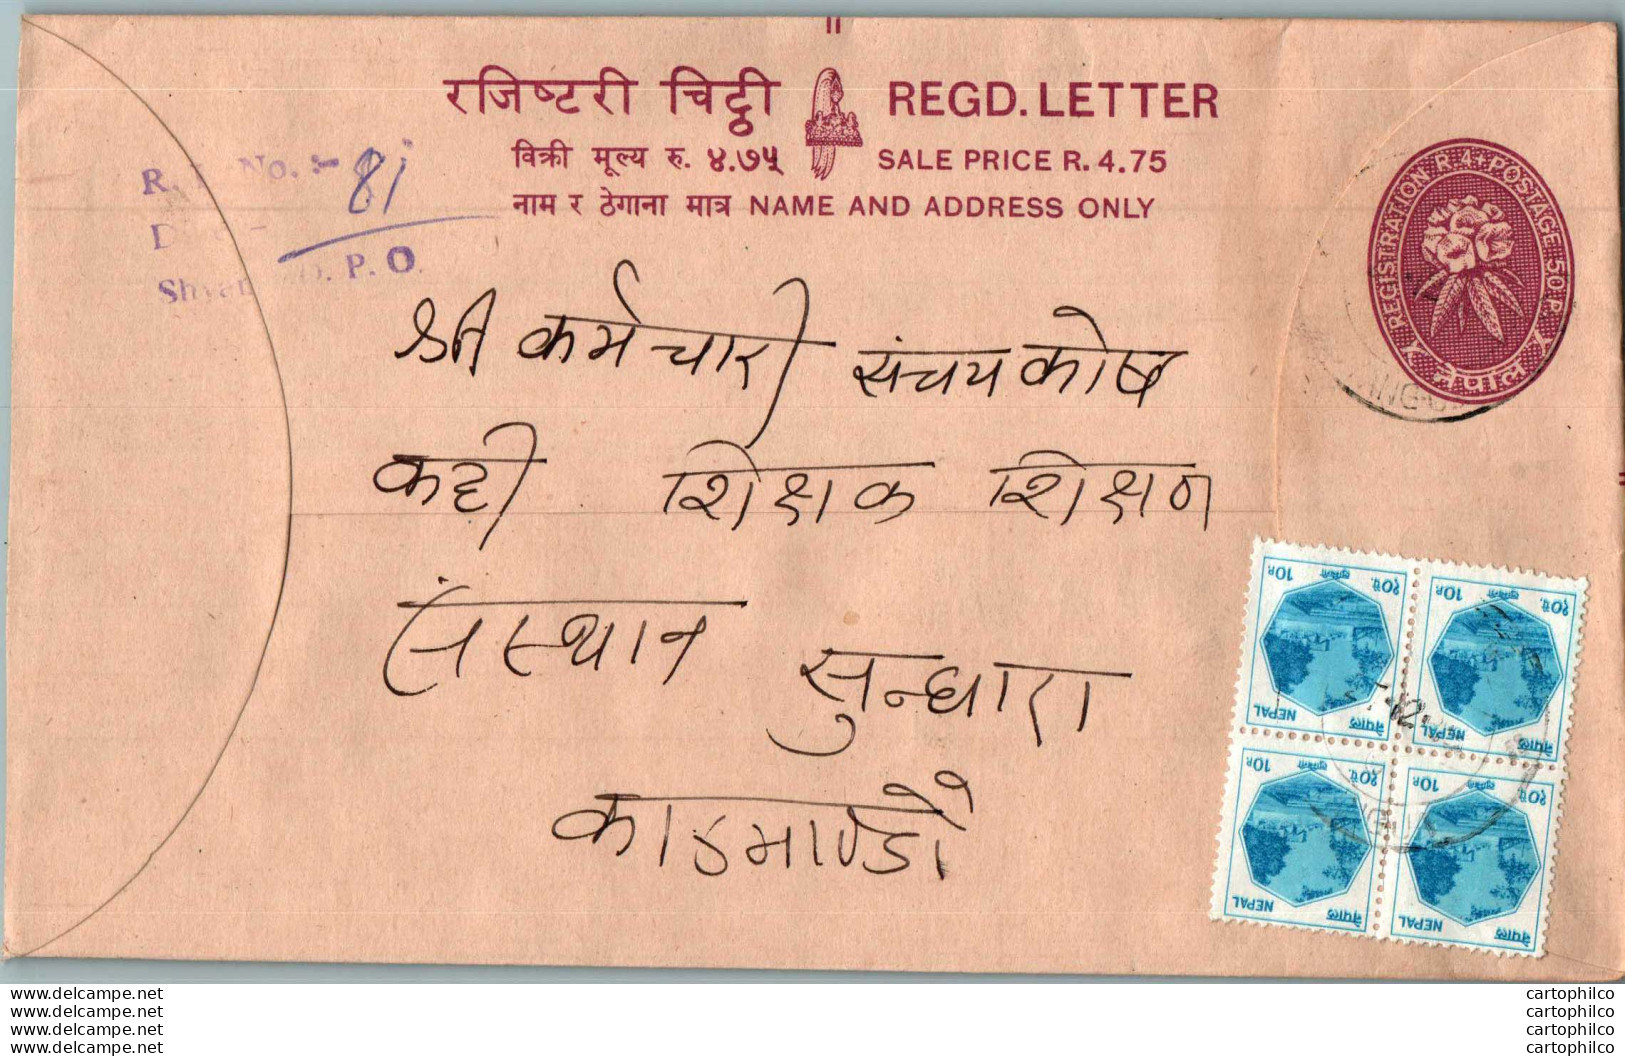 रजिष्टरी चिट्ठी REGD. LETTER
विक्री मूल्य रु. ४.७५ SALE PRICE R. 4.75
नाम र ठेगाना मात्र NAME AND ADDRESS ONLY
No. :- 81
P. O.
REGISTRATION R 4 + POSTAGE 50 P.
नेपाल
श्री कर्मचारी संचय कोष
कट्टी शिक्षक शिक्षण
संस्थान सुन्धारा
काठमाण्डौं
10P. लुम्बिनी १०पै.
NEPAL नेपाल
10P. लुम्बिनी १०पै.
NEPAL नेपाल
10P. लुम्बिनी १०पै.
NEPAL नेपाल
10P. लुम्बिनी १०पै.
NEPAL नेपाल
www.delcampe.net cartophilco
www.delcampe.net cartophilco
www.delcampe.net cartophilco
www.delcampe.net cartophilco